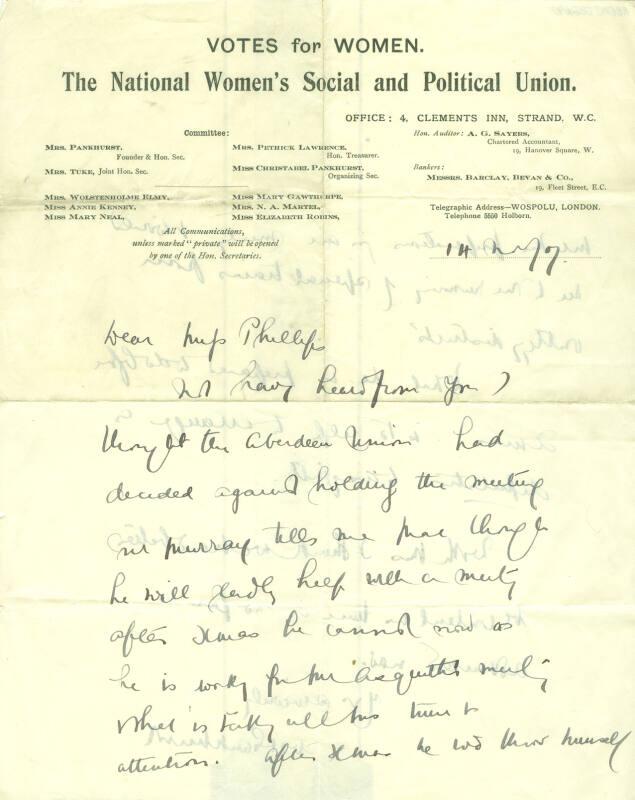 VOTES for WOMEN.
The National Women's Social and Political Union.
OFFICE: 4, CLEMENTS INN, STRAND, W.C.
Committee:
MRS. PANKHURST,
Founder & Hon. Sec.
MRS. TUKE, Joint Hon. Sec.
MRS. WOLSTENHOLME ELMY,
MISS ANNIE KENNEY,
MISS MARY NEAL,
MRS. PETHICK LAWRENCE,
Hon. Treasurer.
MISS CHRISTABEL PANKHURST,
Organizing Sec.
MISS MARY GAWTHORPE,
MRS. N. A. MARTEL,
MISS ELIZABETH ROBINS,
Hon. Auditor: A. G. SAYERS,
Chartered Accountant,
19, Hanover Square, W.
Bankers:
MESSRS. BARCLAY, BEVAN & CO.,
19, Fleet Street, E.C.
Telegraphic Address—WOSPOLU, LONDON.
Telephone 5550 Holborn.
All Communications,
unless marked "private" will be opened
by one of the Hon. Secretaries.
14 Nov/07.
Dear Miss Phillips
Not having heard from you I
thought the Aberdeen Union had
decided against holding the meeting
Mr Murray tells me that though
he will gladly help with a meeting
after Xmas he cannot now as
he is working for Mr Asquith's meeting
which is taking all his time &
attention. After Xmas he wd throw himself